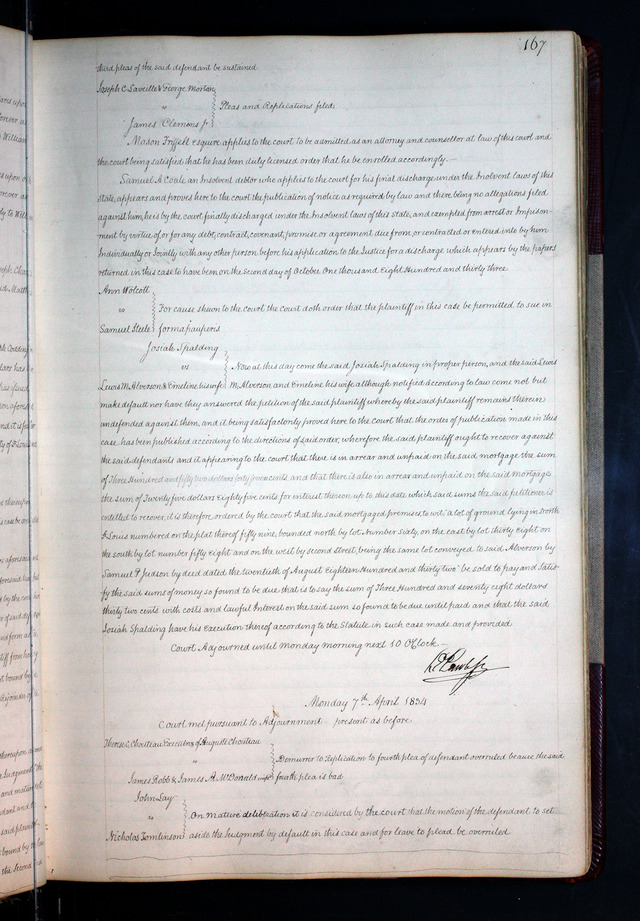 167
third pleas of the said defendant be sustained
Joseph C Laveille & George Morton
vs Pleas and Replications filed.
James Clemens Jr
Mason Frissell esquire applies to the court to be admitted as an attorney and counsellor at law of this court and
the court being satisfied that he has been duly licensed order that he be enrolled accordingly.—
Samuel A Coale an Insolvent debtor who applies to the court for his final discharge under the Insolvent laws of this
state, appears and proves here to the court the publication of notice as required by law and there being no allegations filed
against him, he is by the court finally discharged under the Insolvent laws of this State, and exempted from arrest or Imprison-
ment by virtue of or for any debt, contract, covenant, promise or agreement due from, or contracted or entered into by him
Individually or Jointly with any other person before his application to the Justice for a discharge which appears by the papers
returned in this case to have been on the second day of October One thousand Eight Hundred and thirty three
Ann Wolcott
vs For cause shewn to the court the court doth order that the plaintiff in this case be permitted to sue in
Samuel Steele forma pauperis
Josiah Spalding
vs Now at this day come the said Josiah Spalding in proper person, and the said Lewis
Lewis M. Alverson & Emeline his wife M. Alverson and Emeline his wife although notified according to law come not but
make default nor have they answered the petition of the said plaintiff whereby the said plaintiff remains therein
undefended against them, and it being satisfactorily proved here to the court that the order of publication made in this
case has been published according to the directions of said order, wherefore the said plaintiff ought to recover against
the said defendants and it appearing to the court that there is in arrear and unpaid on the said mortgage the sum
of Three Hundred and fifty two dollars forty seven cents and that there is also in arrear and unpaid on the said mortgage
the sum of Twenty five dollars Eighty five cents for interest thereon up to this date which said sums the said petitioner is
entitled to recover, it is therefore ordered by the court that the said mortgaged premises, to wit; a lot of ground lying in North
St Louis numbered on the plat thereof fifty nine, bounded north by lot Number sixty, on the east by lot thirty eight on
the south by lot number fifty eight and on the west by second street, being the same lot conveyed to said Alverson by
Samuel P Judson by deed dated the twentieth of August Eighteen Hundred and thirty two be sold to pay and satis-
fy the said sums of money so found to be due that is to say the sum of Three Hundred and seventy eight dollars
thirty two cents with costs and lawful Interest on the said sum so found to be due until paid and that the said
Josiah Spalding have his execution thereof according to the Statute in such case made and provided
Court Adjourned until Monday morning next 10 O'Clock—
Monday 7th April 1834
Court met pursuant to Adjournment present as before
Therese C. Chouteau Executrix of Auguste Chouteau
vs Demurrer to replication to fourth plea of defendant overruled because the said
James Robb & James A. McDonald fourth plea is bad
John Lay
vs On mature deliberation it is considered by the court that the motion of the defendant to set
Nicholas Tomlinson aside the Judgment by default in this case and for leave to plead be overruled